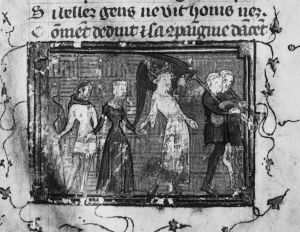 Si belles gens ne vit homs nez.
Coment deduit ⁊ sa ꝯpaignie dācēt